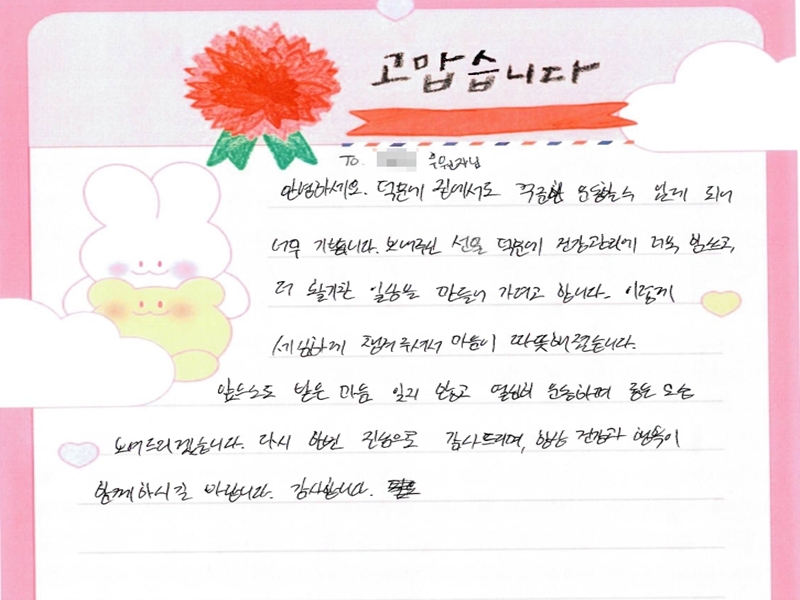 고맙습니다
To. 후원자님
안녕하세요. 덕분에 집에서도 꾸준한 운동할 수 있게 되니
너무 기쁩니다. 보내주신 선물 덕분에 건강관리에 더욱 힘쓰고,
더 활기찬 일상을 만들어 가려고 합니다. 이렇게
세심하게 챙겨주셔서 마음이 따뜻해졌습니다.
앞으로도 받은 마음 잊지 않고 열심히 운동하며 좋은 모습
보여드리겠습니다. 다시 한번 진심으로 감사드리며, 항상 건강과 행복이
함께하시길 바랍니다. 감사합니다.